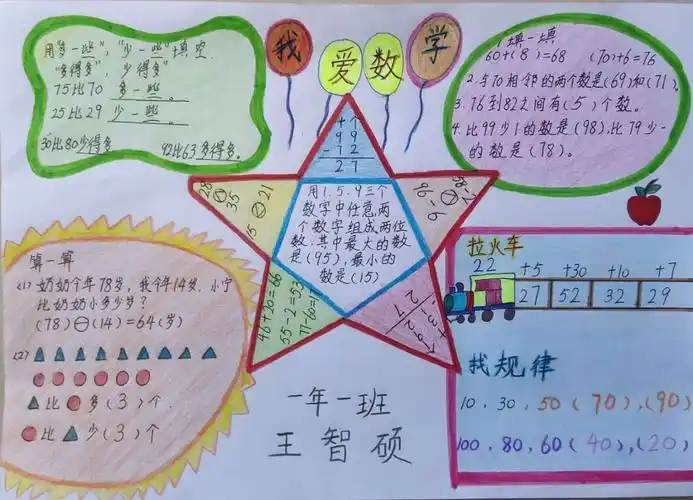 我爱数学
用"多一些","少一些"填空.
"多得多", 少得多"
75比70 多一些。
25比29 少一些。
30比80少得多 92比63多得多。
填一填
60+(8)=68 (70)+6=76
2.与70相邻的两个数是(69)和(71)。
3.76到82之间有(5)个数。
4.比99少1的数是(98),比79少一
的数是(78)。
十个
99
-72
27
28 ○ 35
15 ○ 21
58-2
96-6
用1.5.9三个
数字中任意两
个数字组成两位
数,其中最大的数
是(95),最小的
数是(15)
46+20=66
55-2=53
算一算
(1) 奶奶今年78岁,我今年14岁.小宁
比奶奶小多少岁?
(78)⊖(14)=64(岁)
(2) ▲▲▲▲▲▲▲▲▲
●●●●●●
▲比●多(3)个.
●比▲少(3)个
拉火车
22 +5 +30 +10 +7
27 52 32 29
找规律
10,30,50(70),(90)
100,80,60(40),(20)
一年一班
王智硕